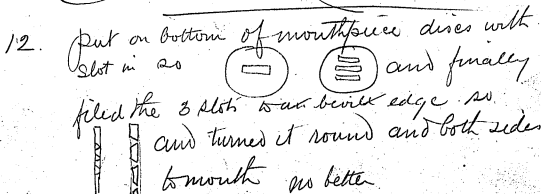 12. Put on bottom of mouthpiece discs with
slot in so and finally
filed the 3 slots to an edge so
and turned it round and both sides
to mouth no better